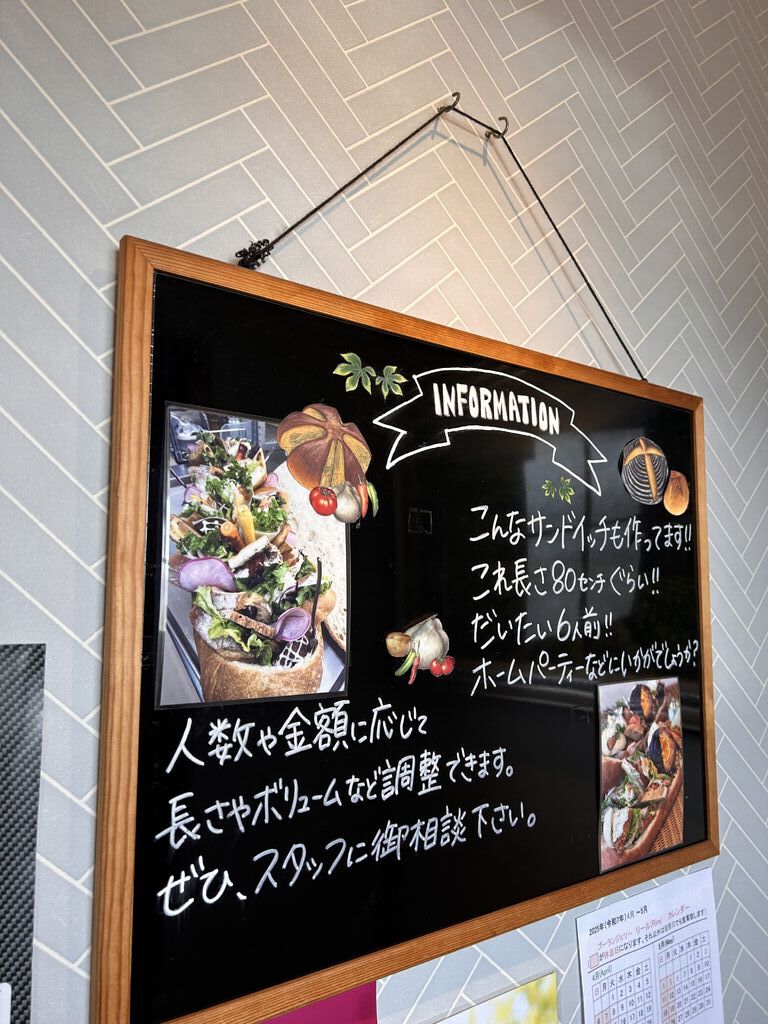 INFORMATION
こんなサンドイッチも作ってます!!
これ長さ80センチぐらい!!
だいたい6人前!!
ホームパーティーなどにいかがでしょうか?
人数や金額に応じて
長さやボリュームなど調整できます。
ぜひ、スタッフに御相談下さい。
2025年(令和7年)4月～5月
ブーランジェリー リール(Rire) カレンダー
が休業日になります。それ以外は祝祭日でも営業致します)
4月(April)
日 月 火 水 木 金 土
1 2 3 4 5
5月(May)
日 月 火 水 木 金 土